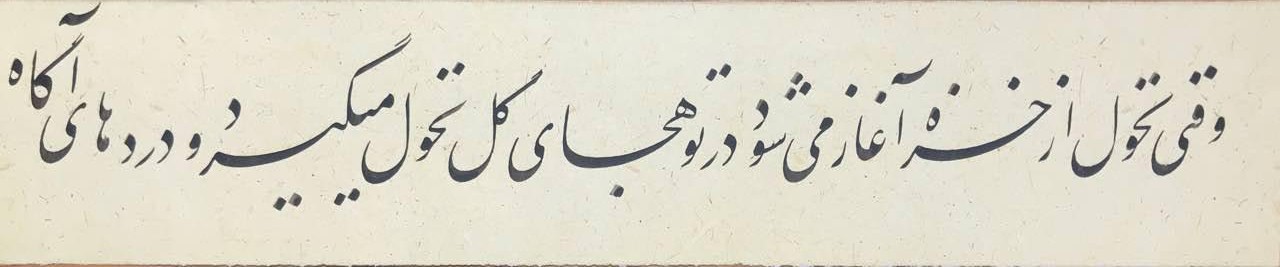 وقتی تحول از خزه آغاز می شود در تو هجای گل تحول میگیرد و درد های آگاه